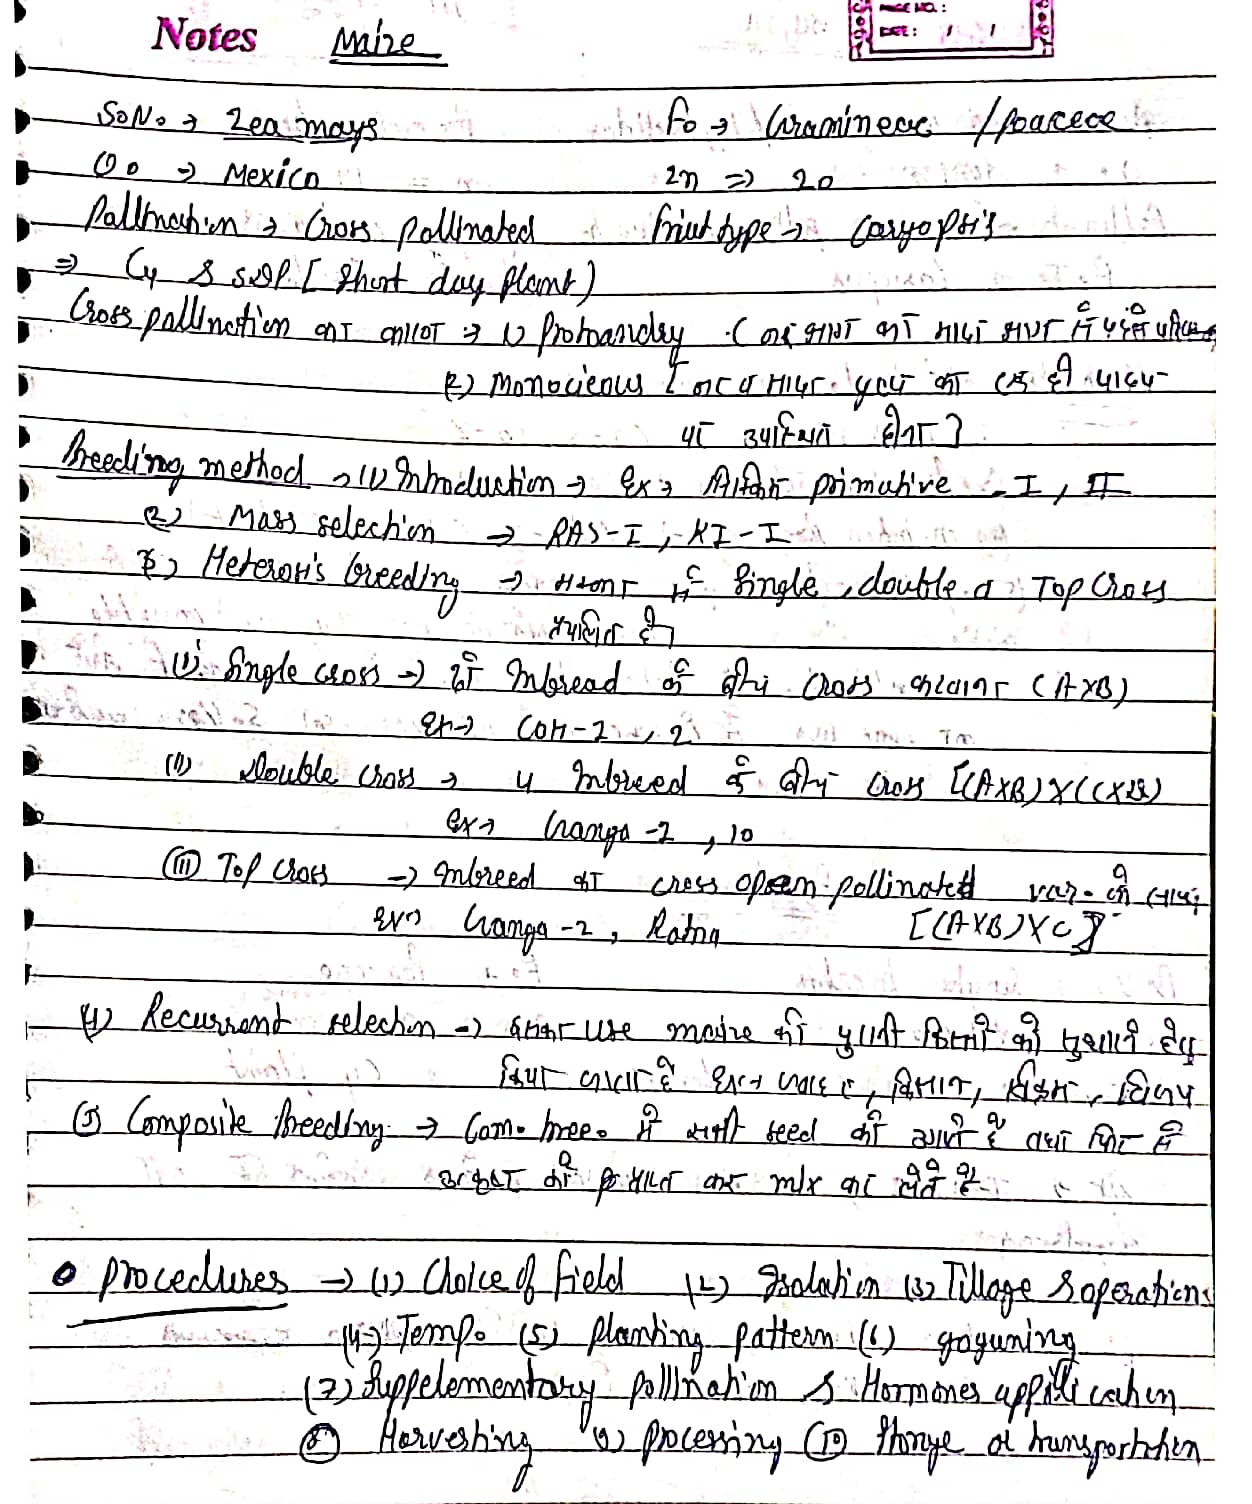 Notes Maize
PAGE NO. :
DATE: / /
S.No. → Zea mays F. → Gramineae / poacece
O. → Mexico 2n => 20
Pallination → Cross pollinated friut type → Caryopsis
⇒ C4 & SDP [ Short day plant )
Cross pallination का कारण → (1) Protoandry ( नर भाग का मादा भाग से पहले
(2) monocieous [ नर व मादा पुष्प का एक ही पादप
पर उपस्थित होना ]
Breeding method → (1) Introduction → Ex → सिक्किम primative - I, II
(2) Mass selection → RAS-I, KI-I
(3) Heterosis breeding → मक्का में Single, double व Top Cross
प्रचलित है।
(i) Single cross → दो Inbread के बीच Cross करवाना (AXB)
Ex→ COH-1, 2
(ii) Double cross → 4 Inbreed के बीच Cross [(AXB)X(CXD)
Ex→ Ganga-2, 10
(iii) Top Cross → Inbreed का cross open-pollinated var. के साथ
Ex→ Ganga-2, Ratna [(AXB)XC]
(4) Recurrent selection → इसका use maize की पुरानी किस्मों को सुधारने हेतु
किया जाता है Ex→ जवाहर, किसान, विक्रम, विजय
(5) Composite Breeding → Com. bree. में सभी seed को है तथा फिर में
को कर mix कर लेते है
• Procedures → (1) Choice of field (2) Isolation (3) Tillage & operations
(4) Temp. (5) planting pattern (6) goguning
(7) Suppelementory pollination & Hormones application
(8) Harvesting (9) processing (10) Storge & transportation